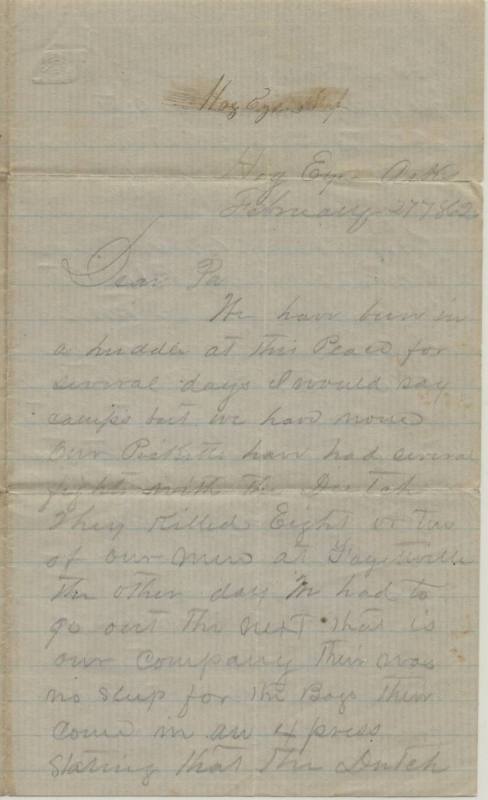 Hog Eye Ark
Hog Eye Ark
February 27 / 862
Dear Pa
We have been in
a huddle at this Peace for
several days I would say
camps but we have none
Our Picketts have had several
fights with the Dutch
They Killed Eight or ten
of our men at Fayettville
the other day We had to
go out the next that is
our Company Their was
no sleep for the Boys their
come in an Express
Stating that the Dutch